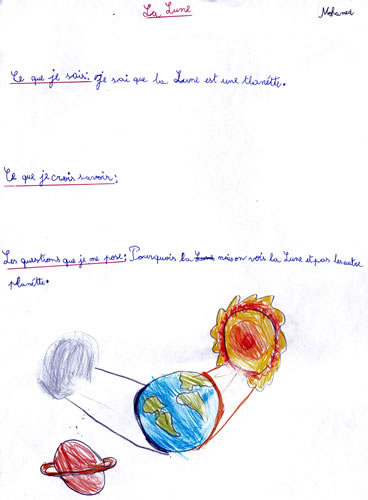 La Lune
Mohamed
Ce que je sais: je sai que la Lune est une tlanétte.
Ce que je crois savoir:
Les questions que je me pose: Pourquois la Lune on vois la Lune et pas les autre
planétte.